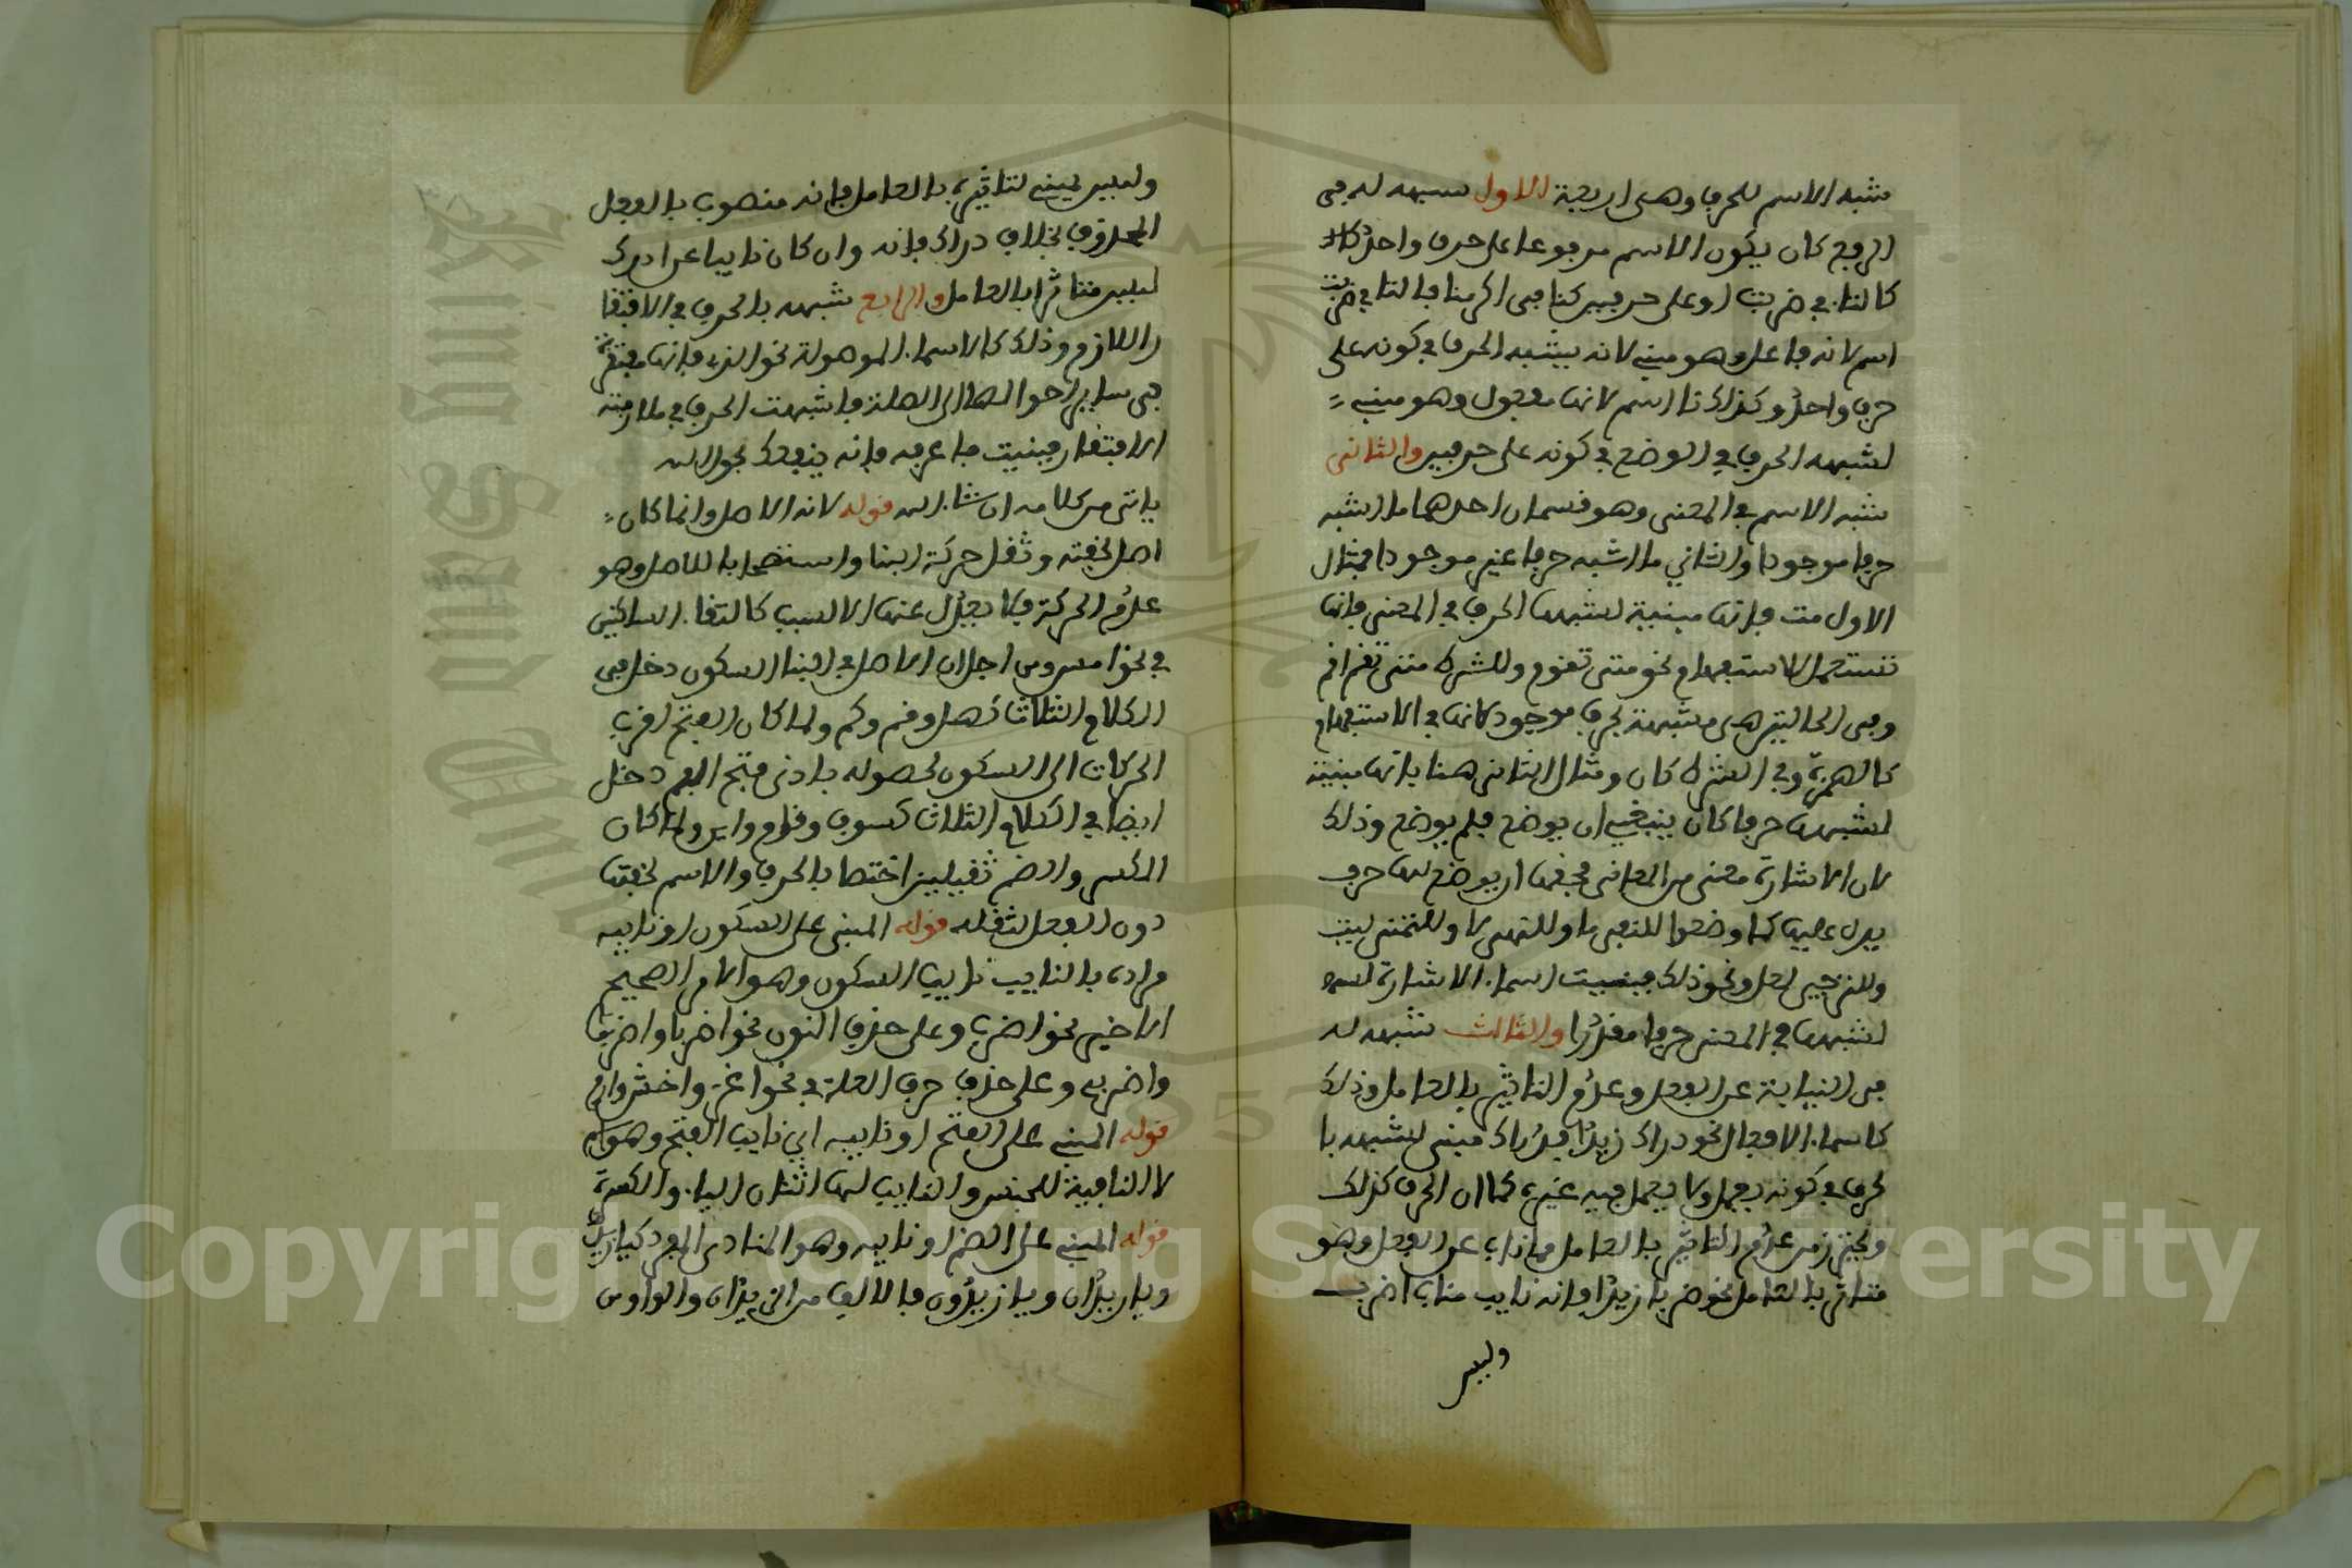 شبه الاسم للحرف وهي اربعة الاول شبهه له في
الوضع كان يكون الاسم موضوعا على حرف واحد
كالتا في ضربت او على حرفين كنا في اكرمنا فالتا في ضربت
اسم لانه فاعل وهو مبني لانه يشبه الحرف في كونه على
حرف واحد وكذلك نا اسم لانها مفعول وهو مبني
لشبهه الحرف في الوضع في كونه على حرفين والثاني
شبه الاسم في المعنى وهو قسمان احدهما ما اشبه
حرفا موجودا والثاني ما اشبه حرفا غير موجود فمثال
الاول متى فانها مبنية لشبهها الحرف في المعنى فانها
تستعمل للاستفهام نحو متى تقوم وللشرط متى تقم اقم
وفي الحالتين هي مشبهة لحرف موجود لانها في الاستفهام
كالهمزة وفي الشرط كان ومثال الثاني هنا فانها مبنية
لشبهها حرفا كان ينبغي ان يوضع فلم يوضع وذلك
لان الاشارة معنى من المعاني فحقها ان يوضع لها حرف
يدل عليها كما وضعوا للنفي ما وللنهي لا وللتمني ليت
وللترجي لعل ونحو ذلك فبنيت اسما الاشارة
لشبهها في المعنى حرفا مقدرا والثالث شبهه له
في النيابة عن الفعل وعدم التاثير بالعامل وذلك
كاسما الافعال نحو دراك زيدا فدراك مبني لشبهه با
لحرف في كونه يعمل ولا يعمل فيه غيره كما ان الحرف كذلك
واحترز من عدم التاثير بالعامل مما ناب عن الفعل وهو
متاثر بالعامل نحو ضربا زيدا فانه نايب مناب اضرب
وليس
وليس بمبني لتاثيره بالعامل فانه منصوب بالفعل
المحذوف بخلاف دراك فانه وان كان نايبا عن ادرك
ليس متاثرا بالعامل والرابع شبهه بالحرف في الافتقا
ر اللازم وذلك كالاسما الموصولة نحو الذي فانها مفتقرة
في ساير احوالها الى الصلة فاشبهت الحرف في ملازمته
الافتقار فبنيت فاعرفه فانه ينفعك بحول الله
ياتي من كلامه ان شا الله قوله لانه الاصل وانما كان
اصلا لخفته وثقل حركة البنا واستصحابا للاصل وهو
عدم الحركة فلا يعدل عنها الا لسبب كالتقا الساكنين
في نحو امس ومن اجل ان الاصل في البنا السكون دخل في
الكلام الثلاث كهل وقم وكم ولما كان الفتح اقرب
الحركات الى السكون لحصوله بادنى فتح الفم دخل
ايضا في الكلام الثلاث كسوف وقام واين ولما كان
الكسر والضم ثقيلين اختصا بالحرف والاسم لخفتها
دون الفعل لثقله قوله المبني على السكون او نايبه
مراده بالنايب نايب السكون وهو الامر الصحيح
الاخير نحو اضرب وعلى حذف النون نحو اضربا واضربوا
واضربي وعلى حذف حرف العلة في نحو اغز واخش وارم
قوله المبني على الفتح او نايبه اي نايب الفتح وهو اسم
لا النافية للجنس والنايب لها اثنان اليا والكسرة
قوله المبني على الضم او نايبه وهو المنادى المفرد كيا زيد
ويا زيدان ويا زيدون فالالف من الزيدان والواو من
Copyright © King Saud University
1957